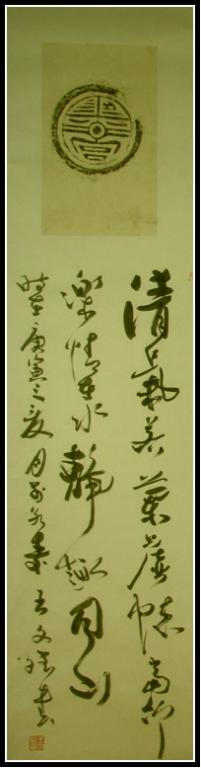 清氣若蘭虛懷當竹
樂情在水靜趣同山
時在庚寅之夏月